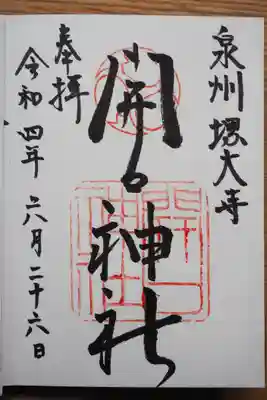 泉州堺大寺
開口神社
奉拝
令和四年六月二十六日
開口
神社